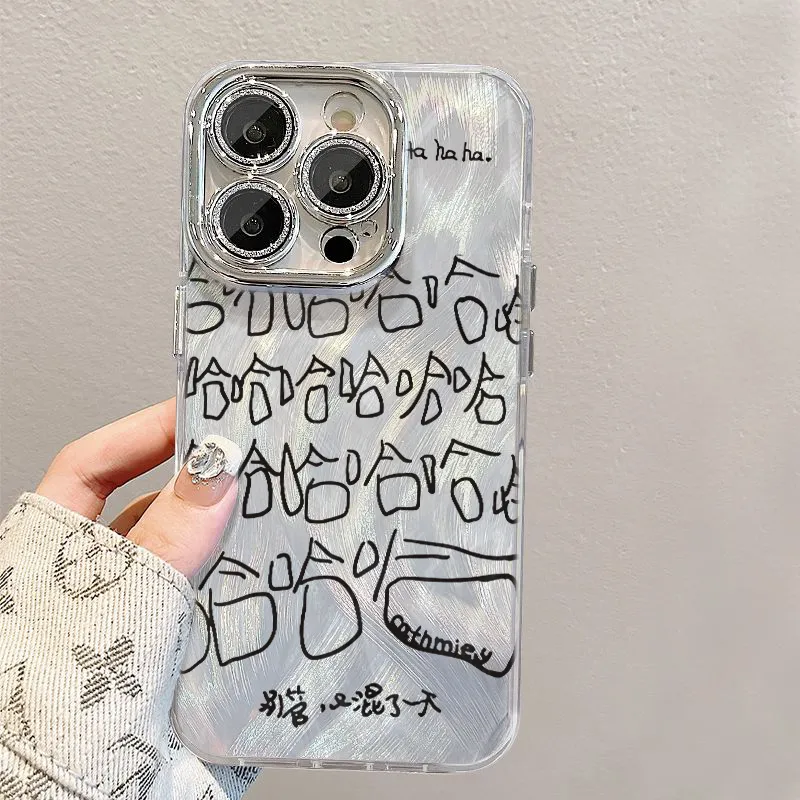 Ha ha ha.
哈哈哈哈哈哈
哈哈哈哈哈哈
哈哈哈哈哈
哈哈哈
cathmiey
别管，混了一天